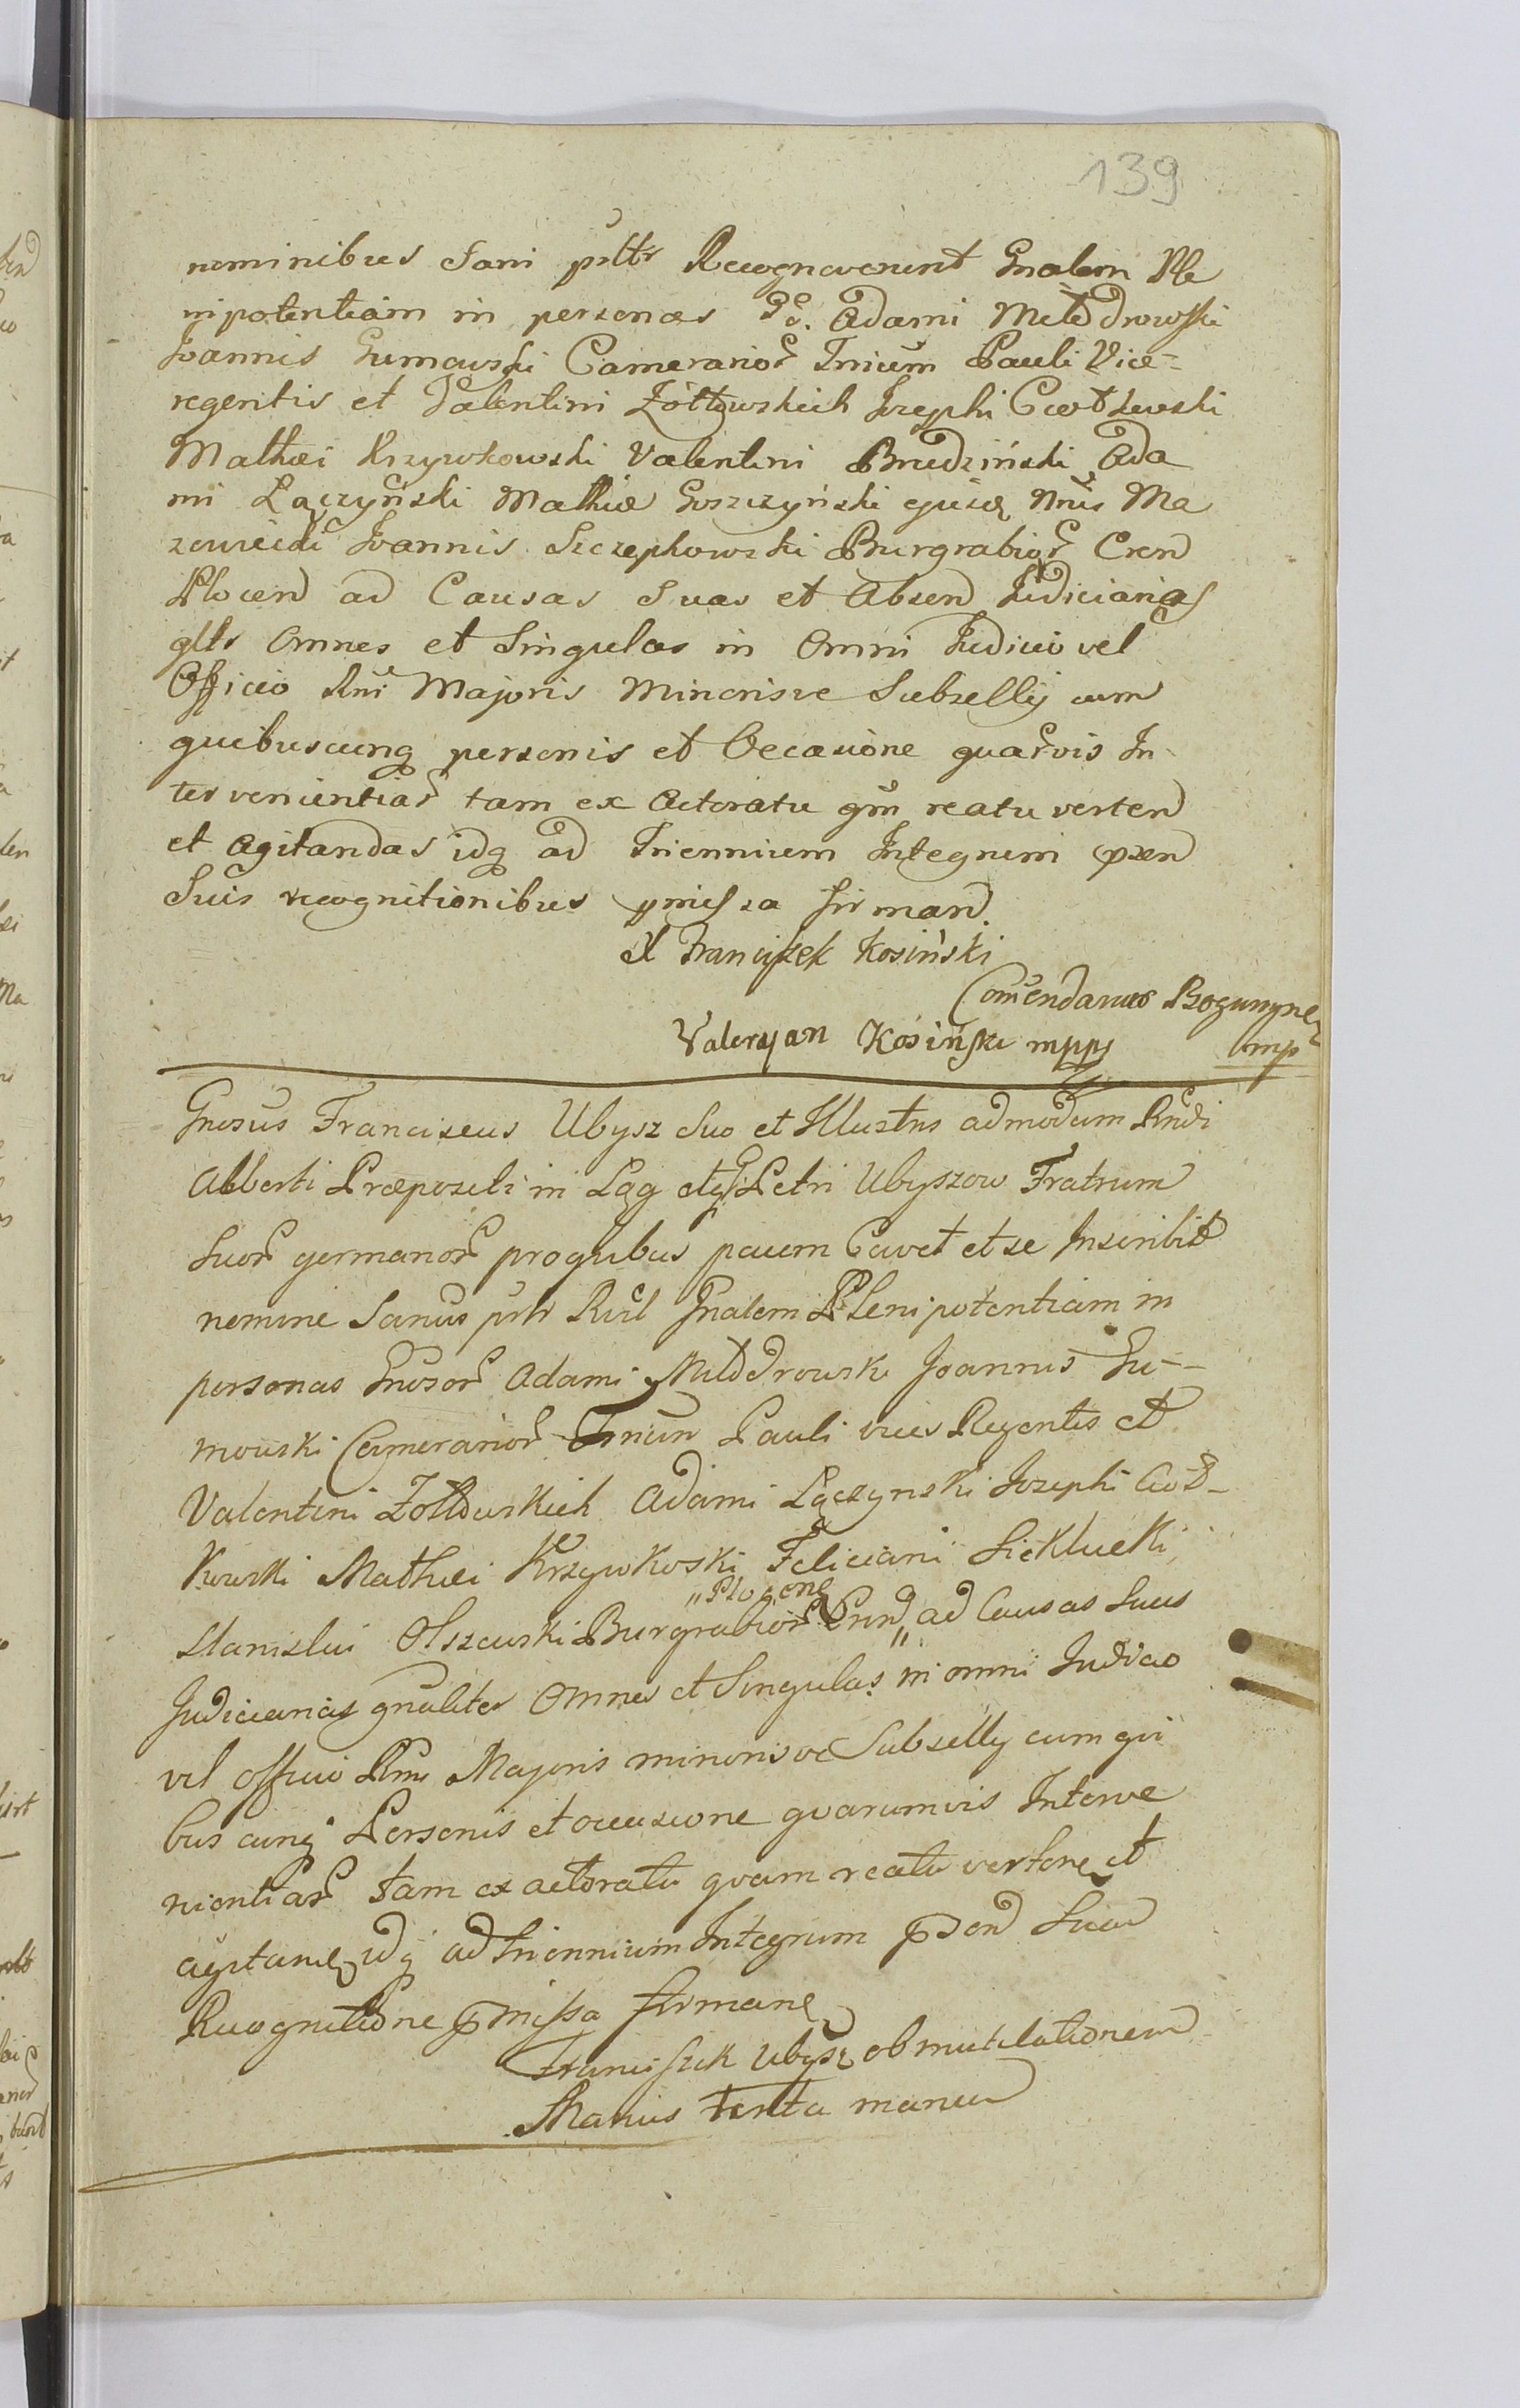 139
nominibus Sani pńltr Recognoverunt Gnalem Ple
nipotentiam in personas Adami Młodrowski
Joannis Gumowski Camerarior Trium Pauli Vice-
regentis et Valentini Żółtowskich Josephi Cwotkowski
Mathæi Krzywkowski Valentini Brudziński Ada
mi Łączyński Mathiæ Goszczyński Ma
Joannis Szczepkowski Burgrabior Cren
Plocen ad Causas Suas et Absen Judiciarias
gltr Omnes et Singulas in Omni Judicio vel
Officio Rni Majoris Minorisve Subsellij cum
quibuscunq personis et Occasione quarvis In-
tervenientiar tam ex Actoratu qm reatu verten
et Agitandas idq ad Triennium Integrum præn
Suis recognitionibus pmissa firman
X Franciszek Kosiński
Comendarius Rogunynen
mp
Valeryan Kosiński mpp
Gnosus Franciscus Ubysz Suo et Illustris admodum Rndi
Alberti Præpositi in Łąg Petri Ubyszow Fratrum
Suor germanor pro quibus pacem Cavet et se Inscribit
nomine Sanus pńltr Rcil Gnalem Plenipotentiam in
personas Gnosor Adami Młodrowski Joannis Gu--
mowski Camerarior Trium Pauli vices Regentis et
Valentini Żołtowskich Adami Łączynski Josephi Cwot-
kowski Mathæi Krzywkoski Feliciani Siekluckj
"Plocens
Stanislai Olszewski Burgrabior Cren " ad Causas Suas
Judiciarias gnaliter Omnes et Singulas in omni Judicio
vel officio Rni Majoris minorisve Subsellij cum qui
bus cunq Personis et occasione quarumvis Interve
nientiar tam ex actoratu quam reatu verten et
agitan idq ad triennium Integrum pden Sua
Recognitione pmissa firman
Franciszek Ubysz ob mutilationem
Manus tenta manu